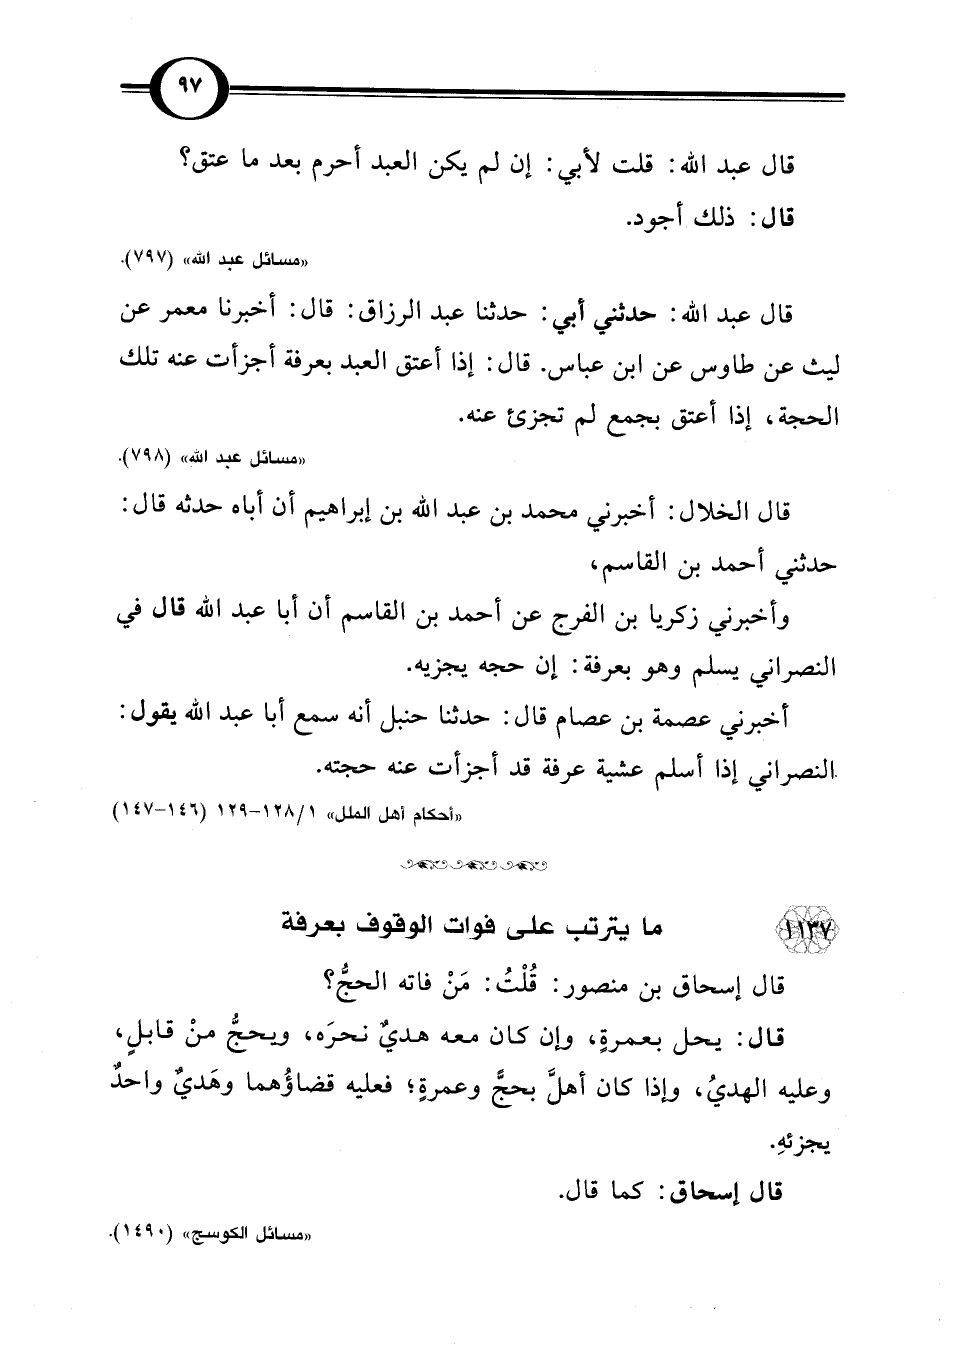 ٩٧
قال عبد الله: قلت لأبي: إن لم يكن العبد أحرم بعد ما عتق؟
قال: ذلك أجود.
«مسائل عبد الله» (٧٩٧).
قال عبد الله: حدثني أبي: حدثنا عبد الرزاق: قال: أخبرنا معمر عن
ليث عن طاوس عن ابن عباس. قال: إذا أعتق العبد بعرفة أجزأت عنه تلك
الحجة، إذا أعتق بجمع لم تجزئ عنه.
«مسائل عبد الله» (٧٩٨).
قال الخلال: أخبرني محمد بن عبد الله بن إبراهيم أن أباه حدثه قال:
حدثني أحمد بن القاسم،
وأخبرني زكريا بن الفرج عن أحمد بن القاسم أن أبا عبد الله قال في
النصراني يسلم وهو بعرفة: إن حجه يجزيه.
أخبرني عصمة بن عصام قال: حدثنا حنبل أنه سمع أبا عبد الله يقول:
النصراني إذا أسلم عشية عرفة قد أجزأت عنه حجته.
«أحكام أهل الملل» ١/ ١٢٨-١٢٩ (١٤٦-١٤٧)
١١٣٧ ما يترتب على فوات الوقوف بعرفة
قال إسحاق بن منصور: قُلْتُ: مَنْ فاته الحجُّ؟
قال: يحل بعمرةٍ، وإن كان معه هديٌ نحرَه، ويحجُّ منْ قابلٍ،
وعليه الهديُ، وإذا كان أهلَّ بحجٍّ وعمرةٍ؛ فعليه قضاؤُهما وهَديٌ واحدٌ
يجزئهِ.
قال إسحاق: كما قال.
«مسائل الكوسج» (١٤٩٠).